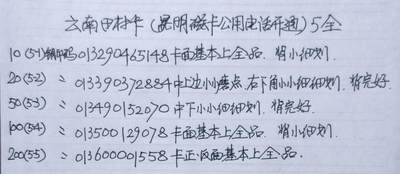 云南田村卡（昆明磁卡公用电话开通）5全
10（5-1）编码013290465148卡面基本上全品. 稍小细划.
20（5-2） 〃 013390372884中上边小小磕点. 右下角小小细细划. 稍完好.
50（5-3） 〃 013490152070中下小小细划. 稍完好.
100（5-4） 〃 013500129078卡面基本上全品. 稍小细划.
200（5-5） 〃 013600001558卡正.反面基本上全品.